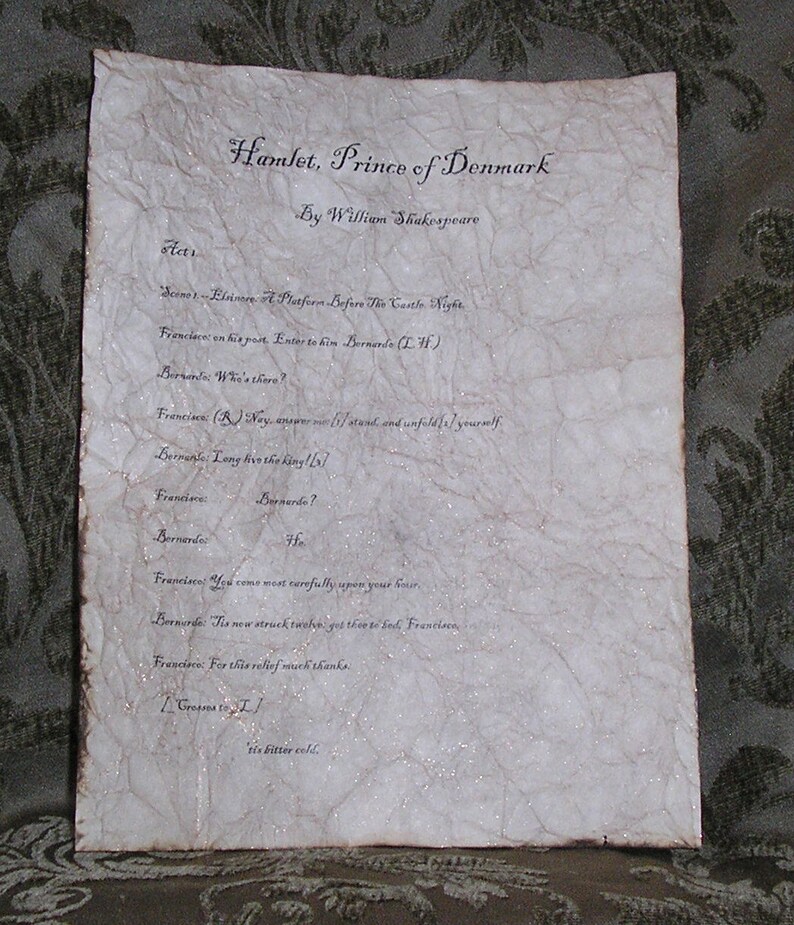 Hamlet, Prince of Denmark
By William Shakespeare
Act 1
Scene 1.--Elsinore. A Platform Before The Castle. Night.
Francisco: on his post. Enter to him Bernardo (L.H.)
Bernardo: Who's there?
Francisco: (R.) Nay, answer me:[1] stand, and unfold[2] yourself.
Bernardo: Long live the king![3]
Francisco: Bernardo?
Bernardo: He.
Francisco: You come most carefully upon your hour.
Bernardo: 'Tis now struck twelve; get thee to bed, Francisco.
Francisco: For this relief much thanks.
[_Crosses to_ L.]
'tis bitter cold,